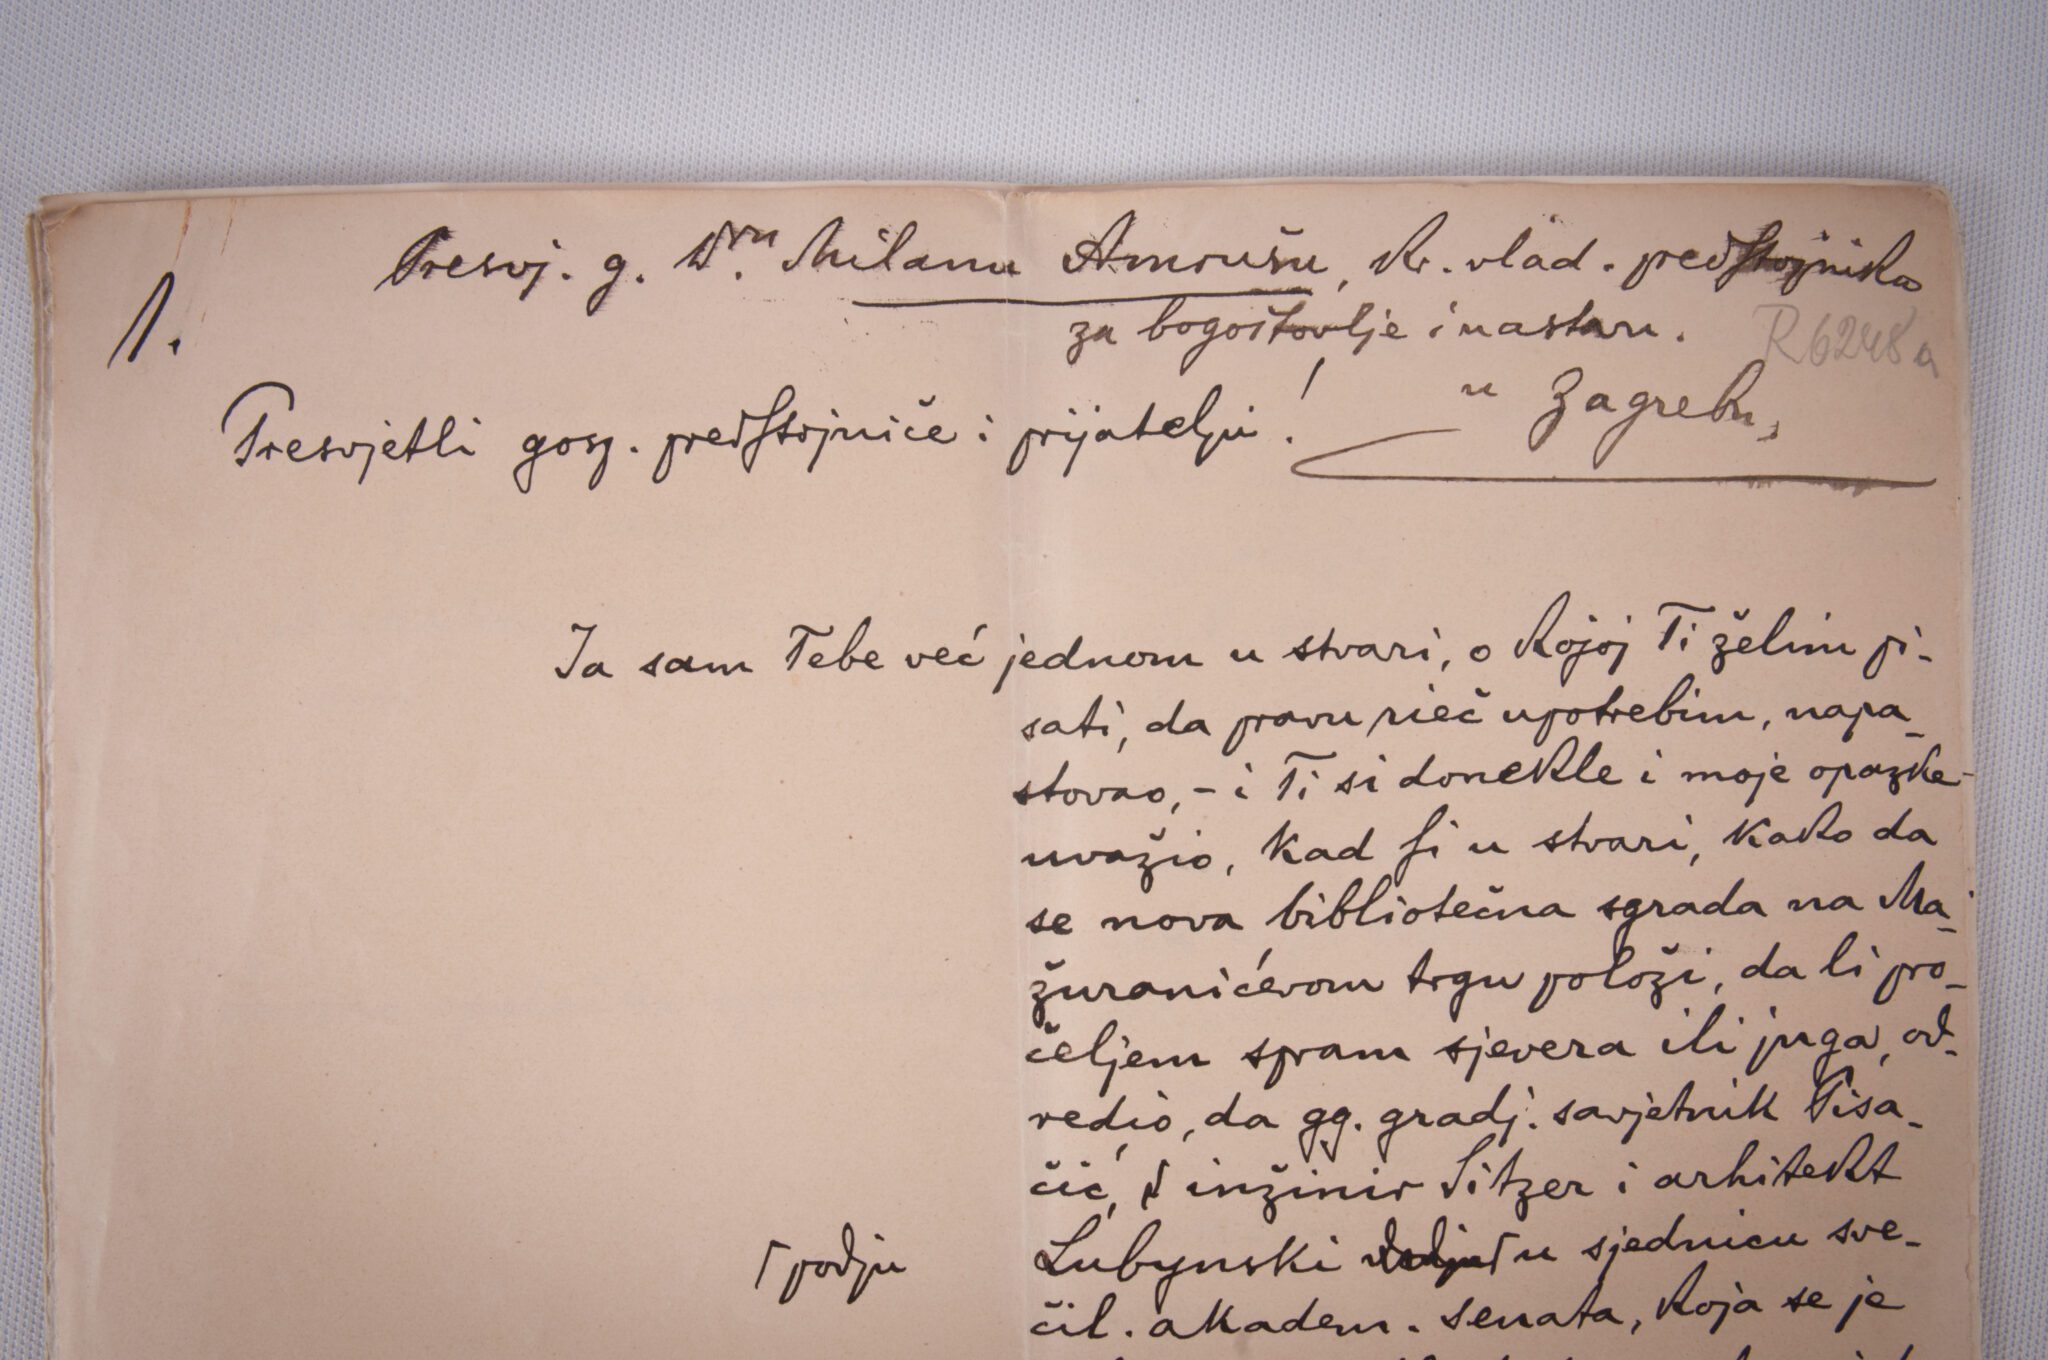 Presvj. g. Dru. Milanu Amrušu, kr. vlad. predstojnika
za bogoštovlje i nastavu.
R 6248 a
1.
u Zagrebu,
Presvjetli gosp. predstojniče i prijatelju!
Ja sam Tebe već jednom u stvari, o kojoj Ti želim pi-
sati, da pravu rieč upotrebim, napa-
stovao, - i Ti si donekle i moje opazke
uvažio, kad si u stvari, kako da
se nova bibliotečna sgrada na Ma-
žuranićevom trgu položi, da li pro-
čeljem spram sjevera ili juga, od-
redio, da gg. gradj. savjetnik Pisa-
čić, inžinir Pitzer i arhitekt
Lubynski u sjednicu sve-
podju
čil. akadem. senata, koja se je